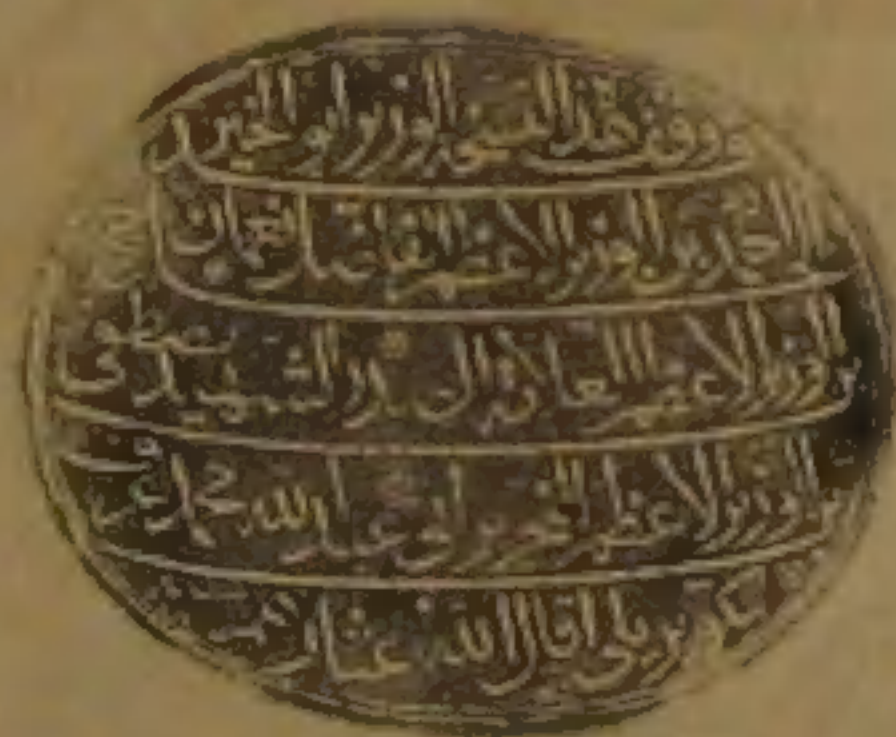 وقف هذا الوزير أبو الخير
احمد بن الوزير الاعظم الفاضل نعمان
بن الوزير الاعظم الشهيد مصطفى
بن الوزير الاعظم ابي عبد الله محمد عرف
بكوپريلي اقال الله عثارهم